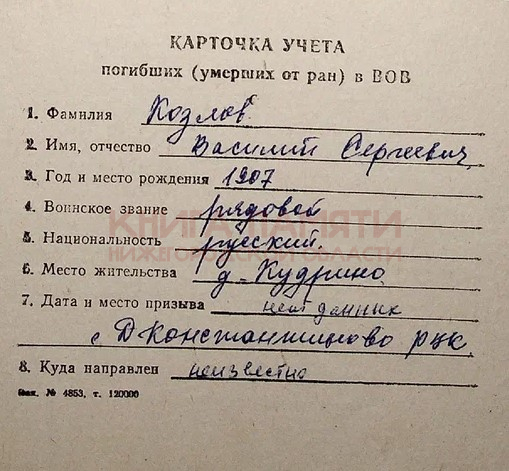 КАРТОЧКА УЧЕТА
погибших (умерших от ран) в ВОВ
1. Фамилия Козлов
2. Имя, отчество Василий Сергеевич,
3. Год и место рождения 1907
4. Воинское звание рядовой
КНИГА ПАМЯТИ
5. Национальность русский.
НИЖЕГОРОДСКОЙ ОБЛАСТИ
6. Место жительства д. Кудрино
7. Дата и место призыва нет данных
с Д Константиново РВК
8. Куда направлен неизвестно
Зак. № 4853, т. 120000